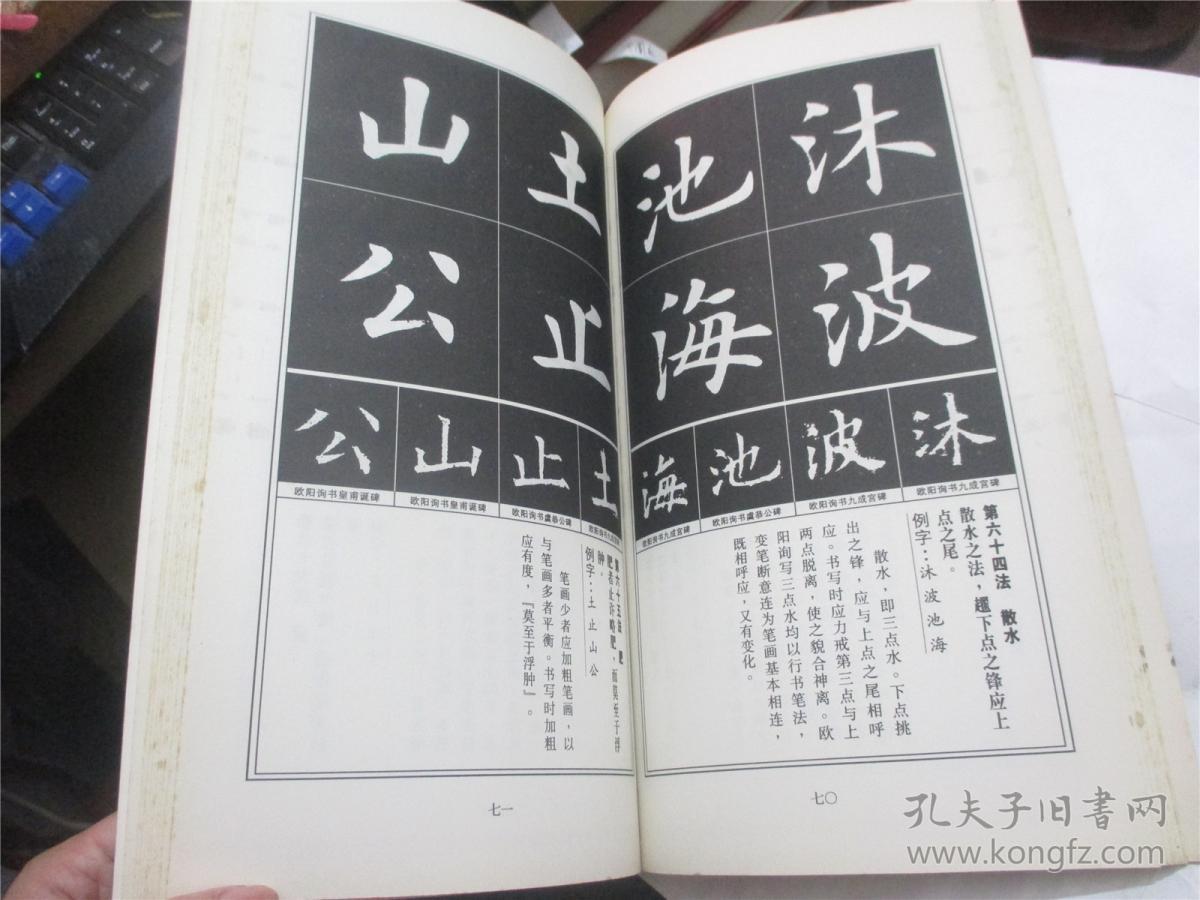 沐
波
池
海
沐
波
池
海
欧阳询书九成宫碑
欧阳询书九成宫碑
欧阳询书虞恭公碑
欧阳询书九成宫碑
第六十四法 散水
散水之法,趯下点之锋应上
点之尾。
例字:沐 波 池 海
散水,即三点水。下点挑
出之锋,应与上点之尾相呼
应。书写时应力戒第三点与上
两点脱离,使之貌合神离。欧
阳询写三点水均以行书笔法,
变笔断意连为笔画基本相连,
既相呼应,又有变化。
七〇
土
止
山
公
土
止
山
公
欧阳询书九成宫碑
欧阳询书虞恭公碑
欧阳询书皇甫诞碑
欧阳询书皇甫诞碑
第六十五法 肥
肥者此许略肥,而莫至于浮
肿。
例字:土 止 山 公
笔画少者应加粗笔画,以
与笔画多者平衡。书写时加粗
应有度,『莫至于浮肿』。
七一
孔夫子旧书网
www.kongfz.com